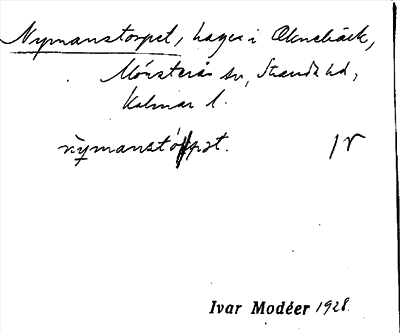 Nymanstorpet, hage i Oknebäck,
Mönsterås sn, Stranda hd,
Kalmar l.
nymanstórpət. IV
Ivar Modéer 1928.